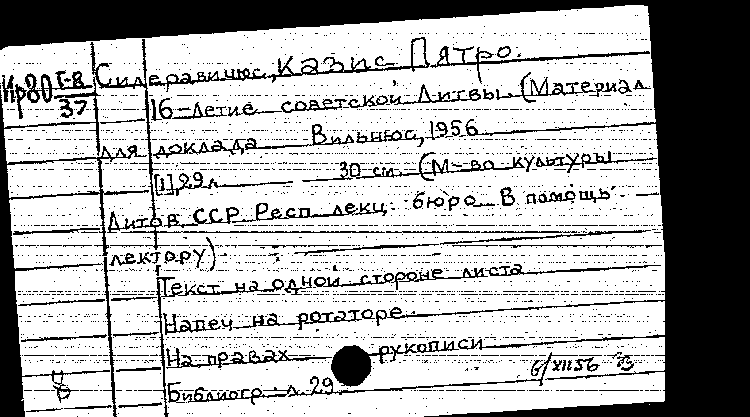 Кр80 Г-8/37 Сидеравичюс, Казис Пятро.
16-летие советской Литвы. (Материал
для доклада Вильнюс, 1956
[1], 29 л 30 см. (М-во культуры
Литов. ССР Респ. лекц. бюро. В помощь
лектору).
Текст на одной стороне листа
Напеч. на ротаторе.
На правах рукописи
Библиогр.: л. 29.
8